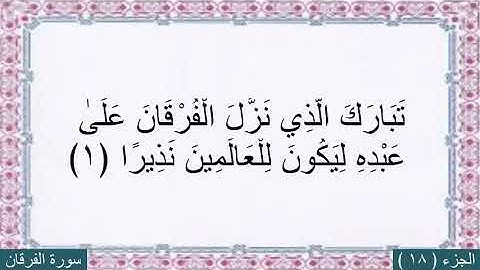 تَبَارَكَ الَّذِي نَزَّلَ الْفُرْقَانَ عَلَىٰ
عَبْدِهِ لِيَكُونَ لِلْعَالَمِينَ نَذِيرًا (١)
الجزء ( ١٨ )
سورة الفرقان